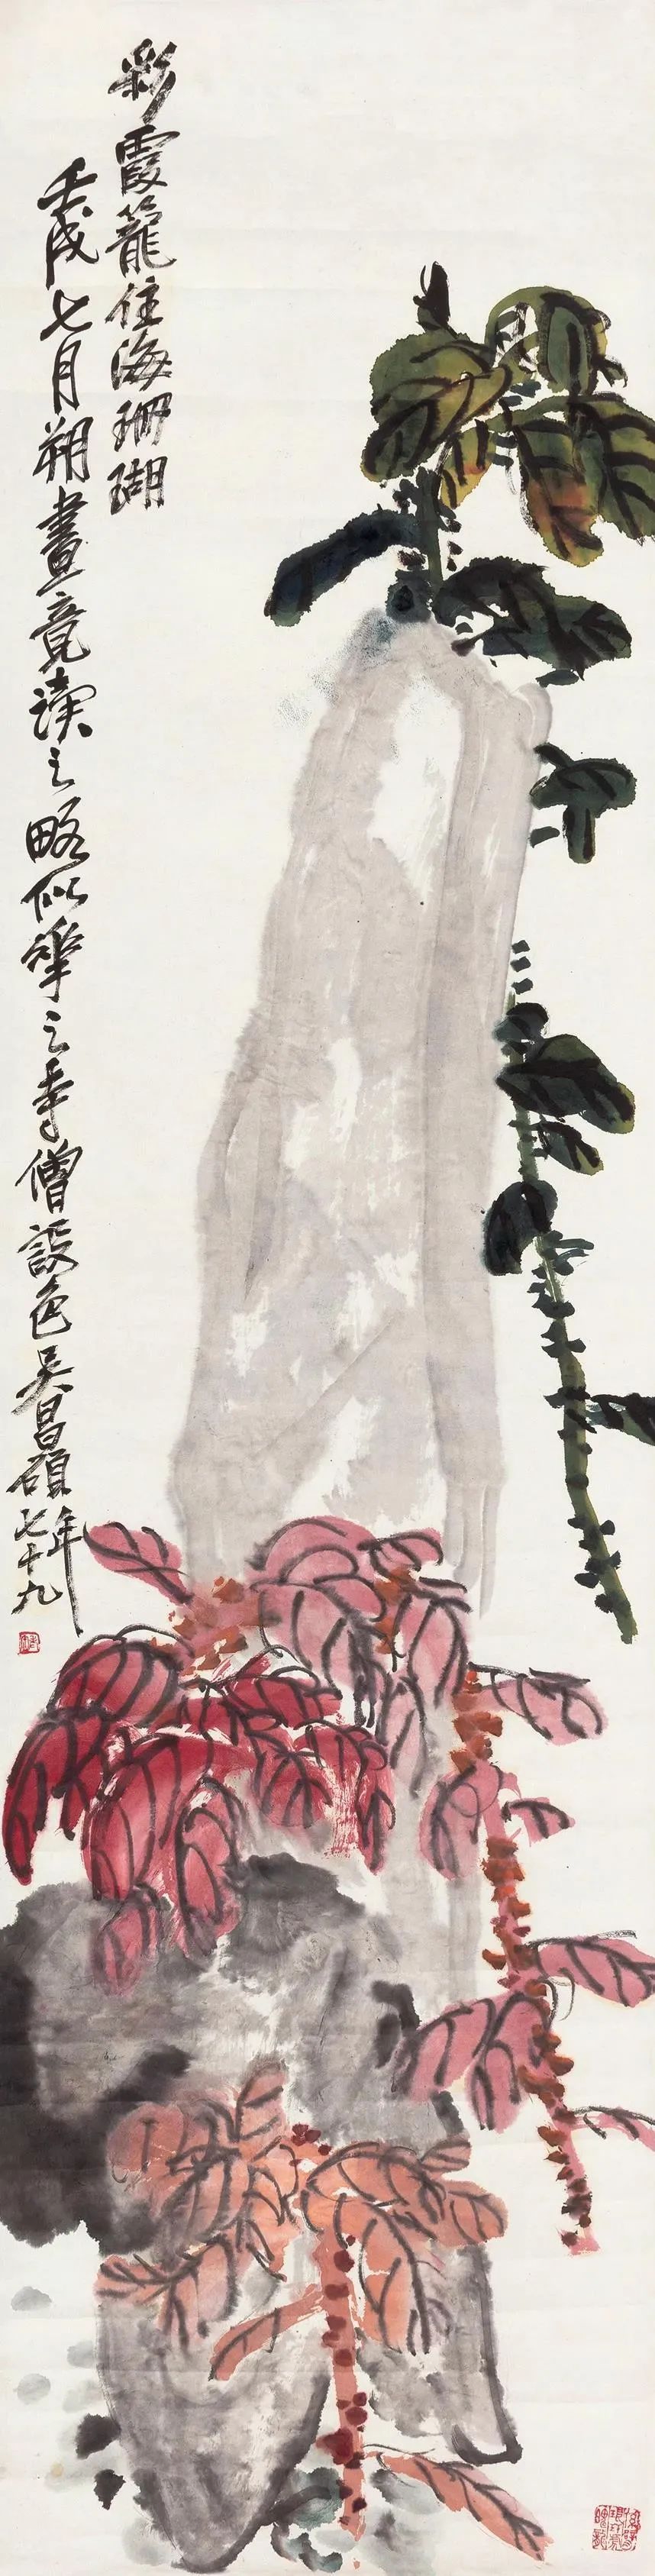 彩霞籠住海珊瑚
壬戌七月朔畫竟讀之略似華之寺僧設色吳昌碩年
七十九